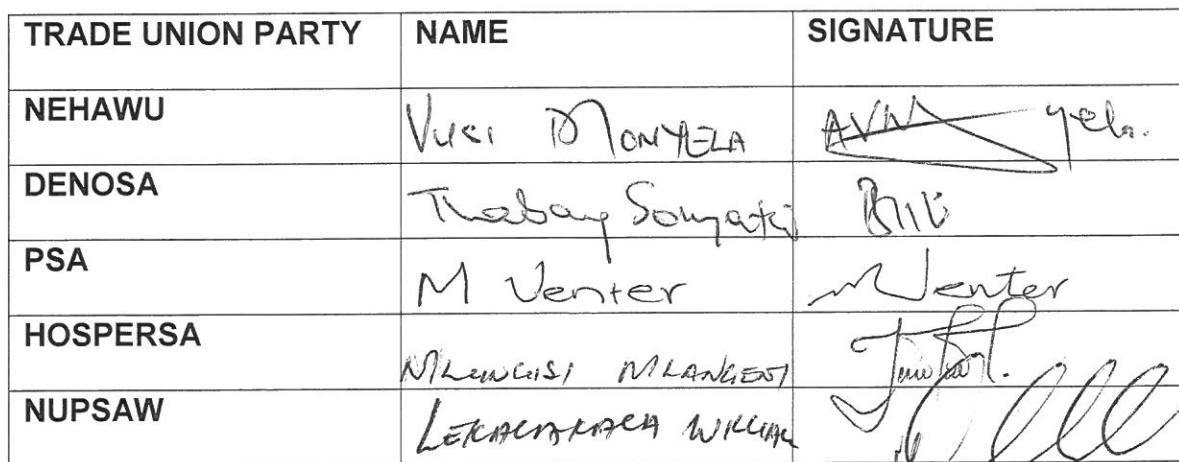 TRADE UNION PARTY NAME SIGNATURE
NEHAWU Vusi D MONYELA
DENOSA Thabang Sonyathi
PSA M Venter M Venter
HOSPERSA MLUNGISI MLANGENI
NUPSAW WILLIAM